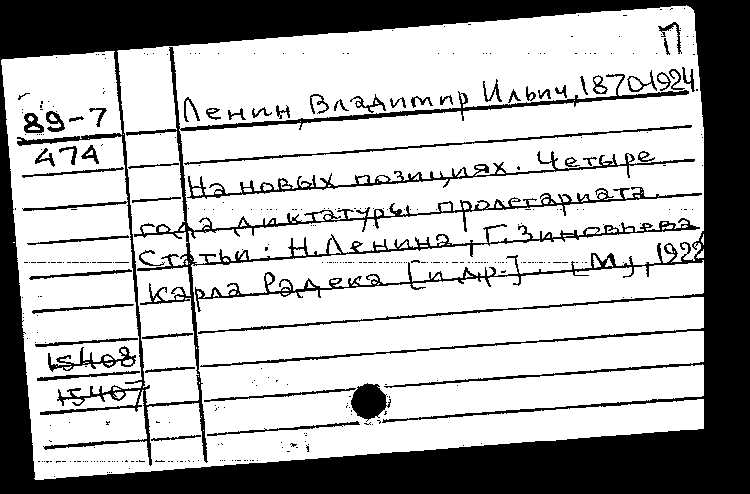 П
89-7
474
Ленин, Владимир Ильич, 1870-1924
На новых позициях. Четыре
года диктатуры пролетариата.
Статьи: Н.Ленина, Г.Зиновьева,
Карла Радека [и др.] - [М.], 1922
15408
15407